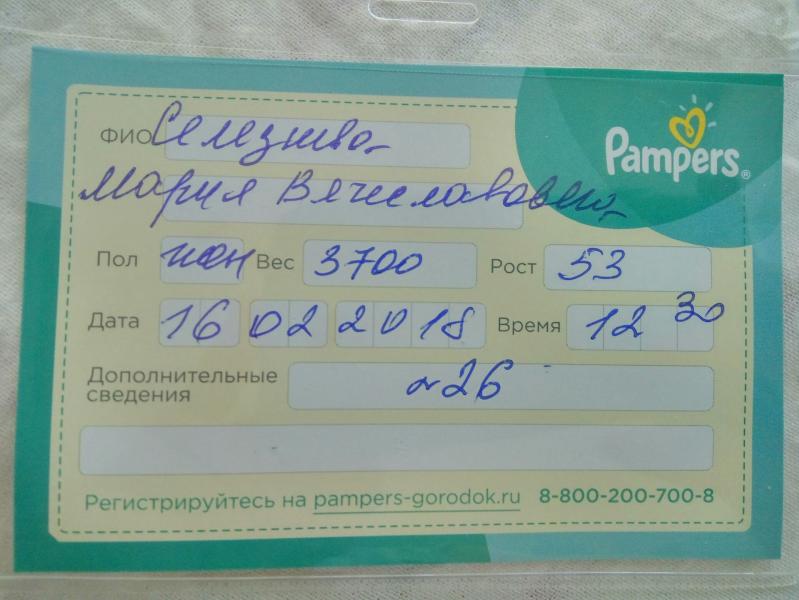 Pampers®
ФИО Селезнева
Мария Вячеславовна
Пол жен Вес 3700 Рост 53
Дата 16 02 2018 Время 12 30
Дополнительные
сведения
26
Регистрируйтесь на pampers-gorodok.ru 8-800-200-700-8